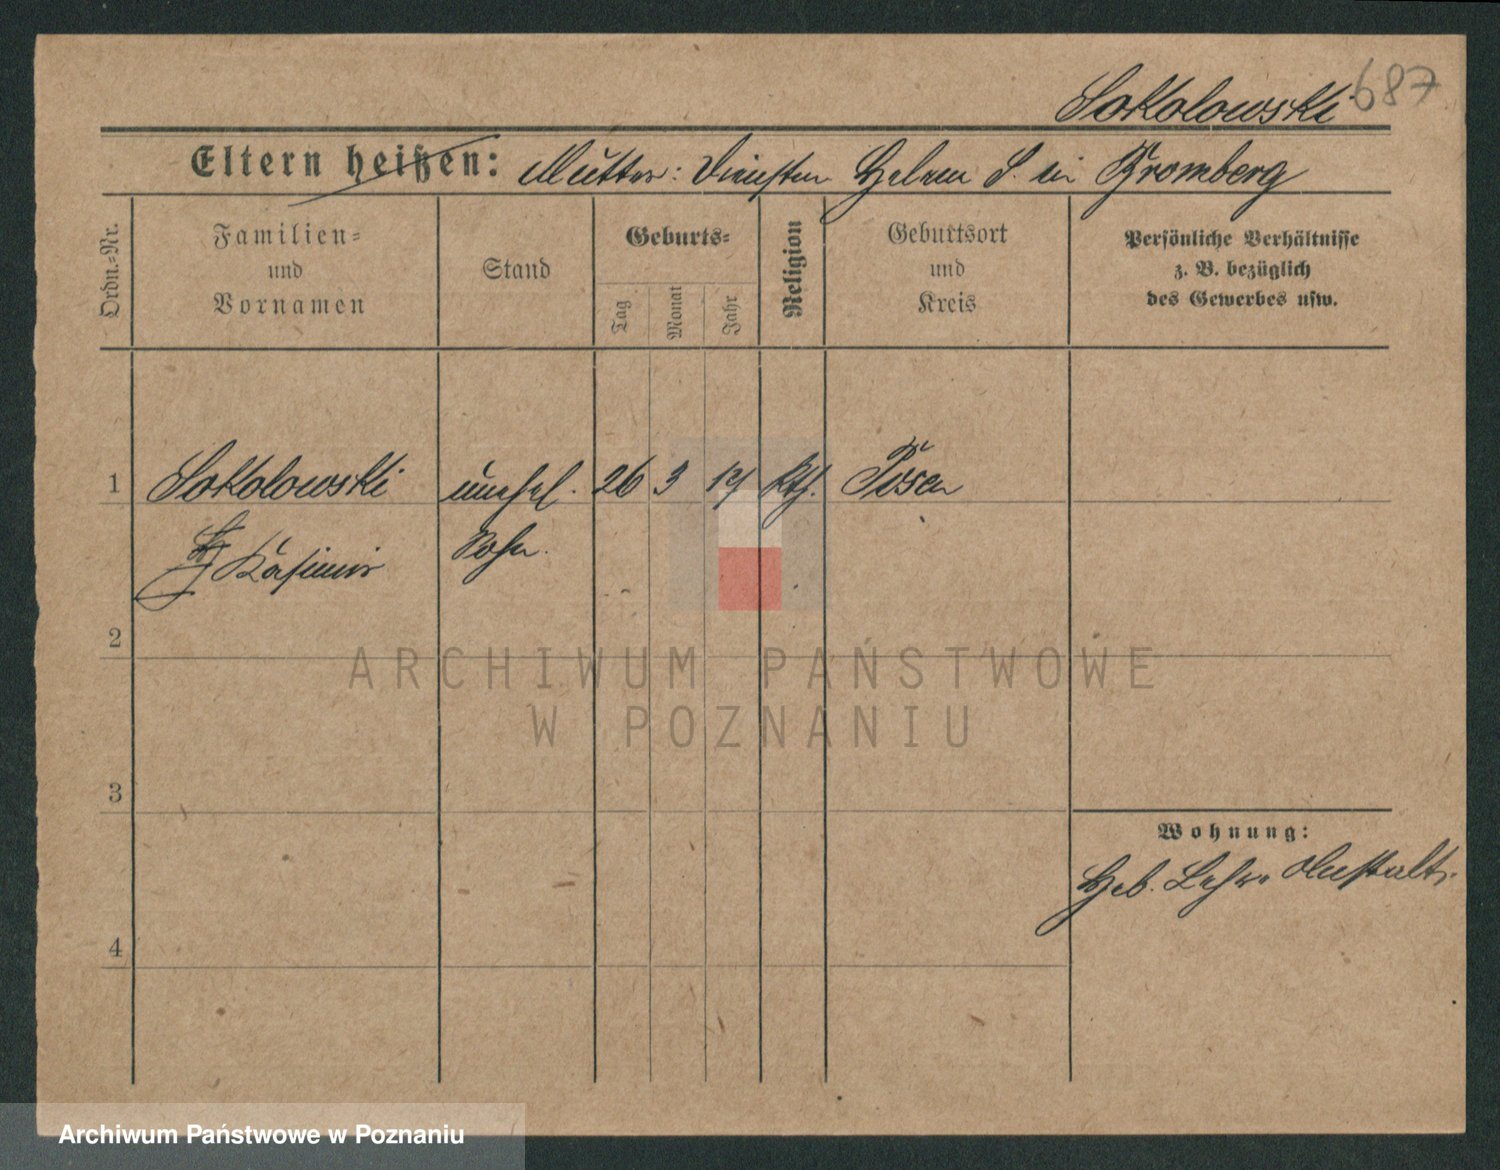 687
Sokolowski
Eltern heißen: Mutter: Dienstm. Helene S. in Bromberg
Ordn.=Nr.
Familien=
und
Vornamen
Stand
Geburts=
Tag
Monat
Jahr
Religion
Geburtsort
und
Kreis
Persönliche Verhältnisse
z. B. bezüglich
des Gewerbes usw.
1 Sokolowski unehel. 26 3 14 kth. Posen
Kasimir Sohn.
2
3
4
Wohnung:
Heb. Lehr= Anstalt.
ARCHIWUM PAŃSTWOWE
W POZNANIU
Archiwum Państwowe w Poznaniu